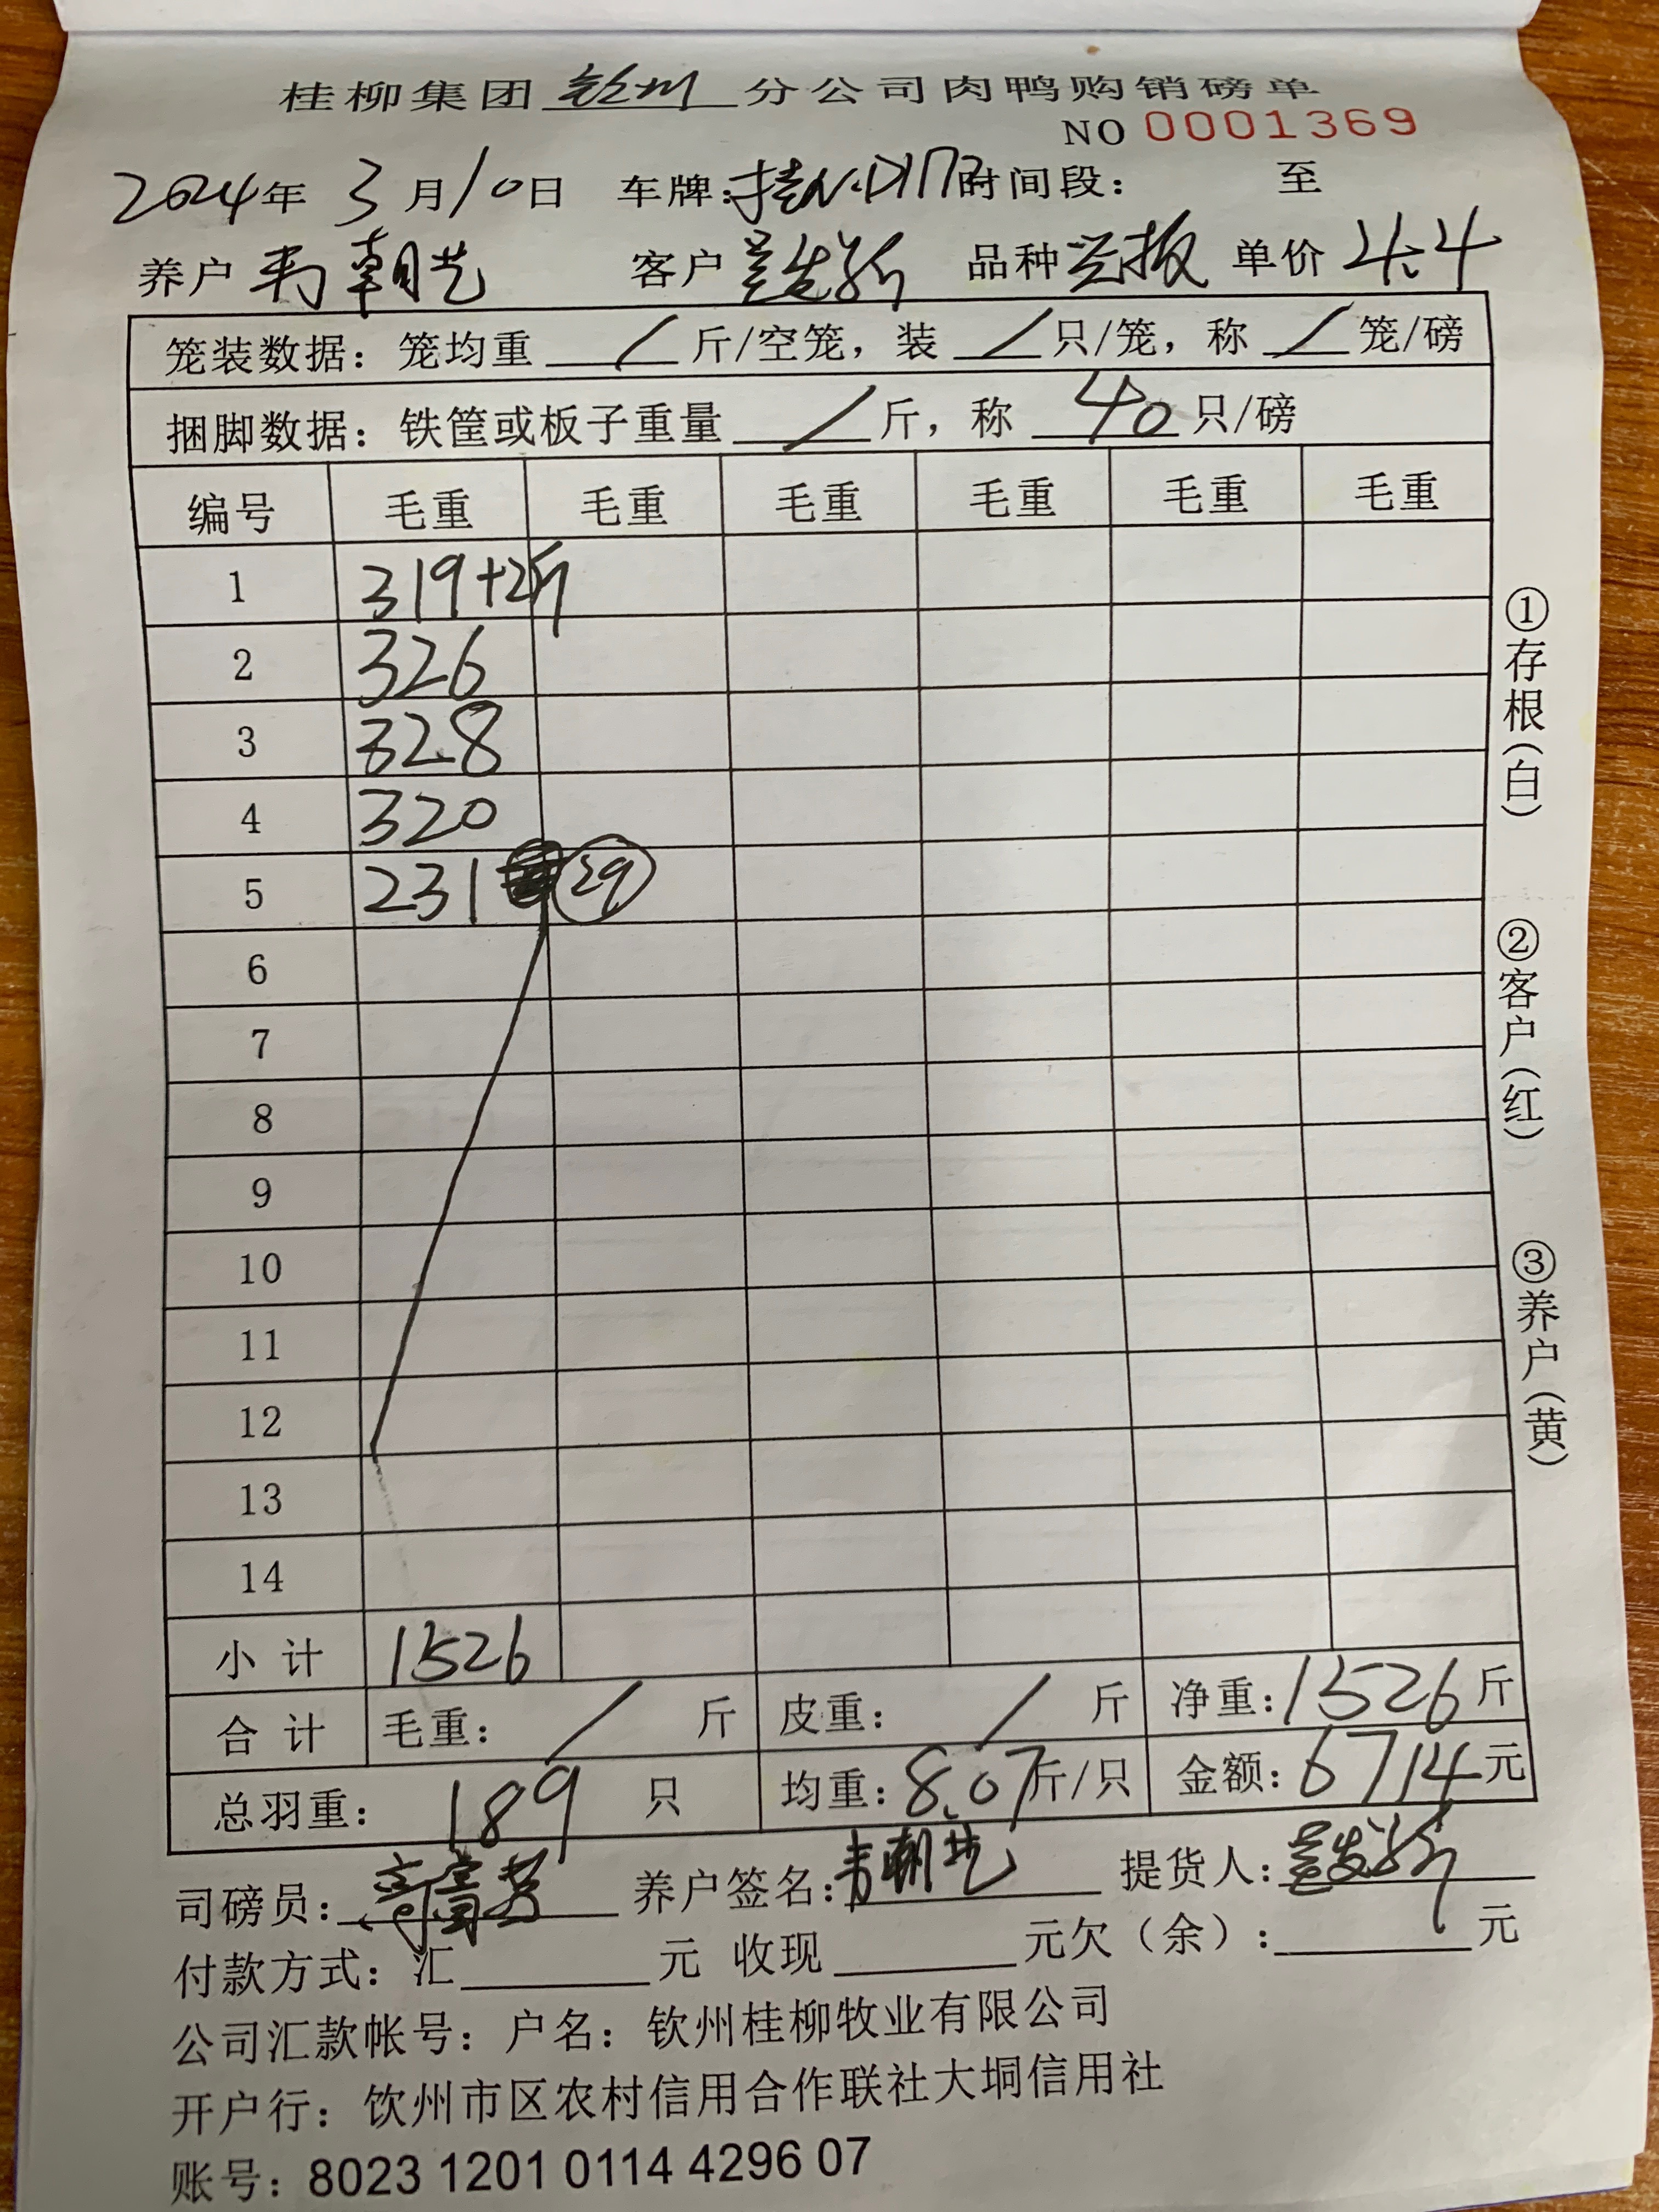 桂柳集团 钦州 分公司肉鸭购销磅单
NO 0001369
2024年 3月10日 车牌: 时间段: 至
养户 韦朝艺 客户 品种 单价 4.4
笼装数据: 笼均重 / 斤/空笼, 装 / 只/笼, 称 / 笼/磅
捆脚数据: 铁筐或板子重量 / 斤, 称 40 只/磅
编号 毛重 毛重 毛重 毛重 毛重 毛重
1 319+2斤
2 326
3 328
4 320
5 231 29
6
7
8
9
10
11
12
13
14
小计 1526
合计 毛重: / 斤 皮重: / 斤 净重: 1526 斤
总羽重: 189 只 均重: 8.07 斤/只 金额: 6714 元
司磅员: 养户签名: 韦朝艺 提货人:
付款方式: 汇 元 收现 元欠(余): 元
公司汇款帐号: 户名: 钦州桂柳牧业有限公司
开户行: 钦州市区农村信用合作联社大垌信用社
账号: 8023 1201 0114 4296 07
①存根(白)
②客户(红)
③养户(黄)